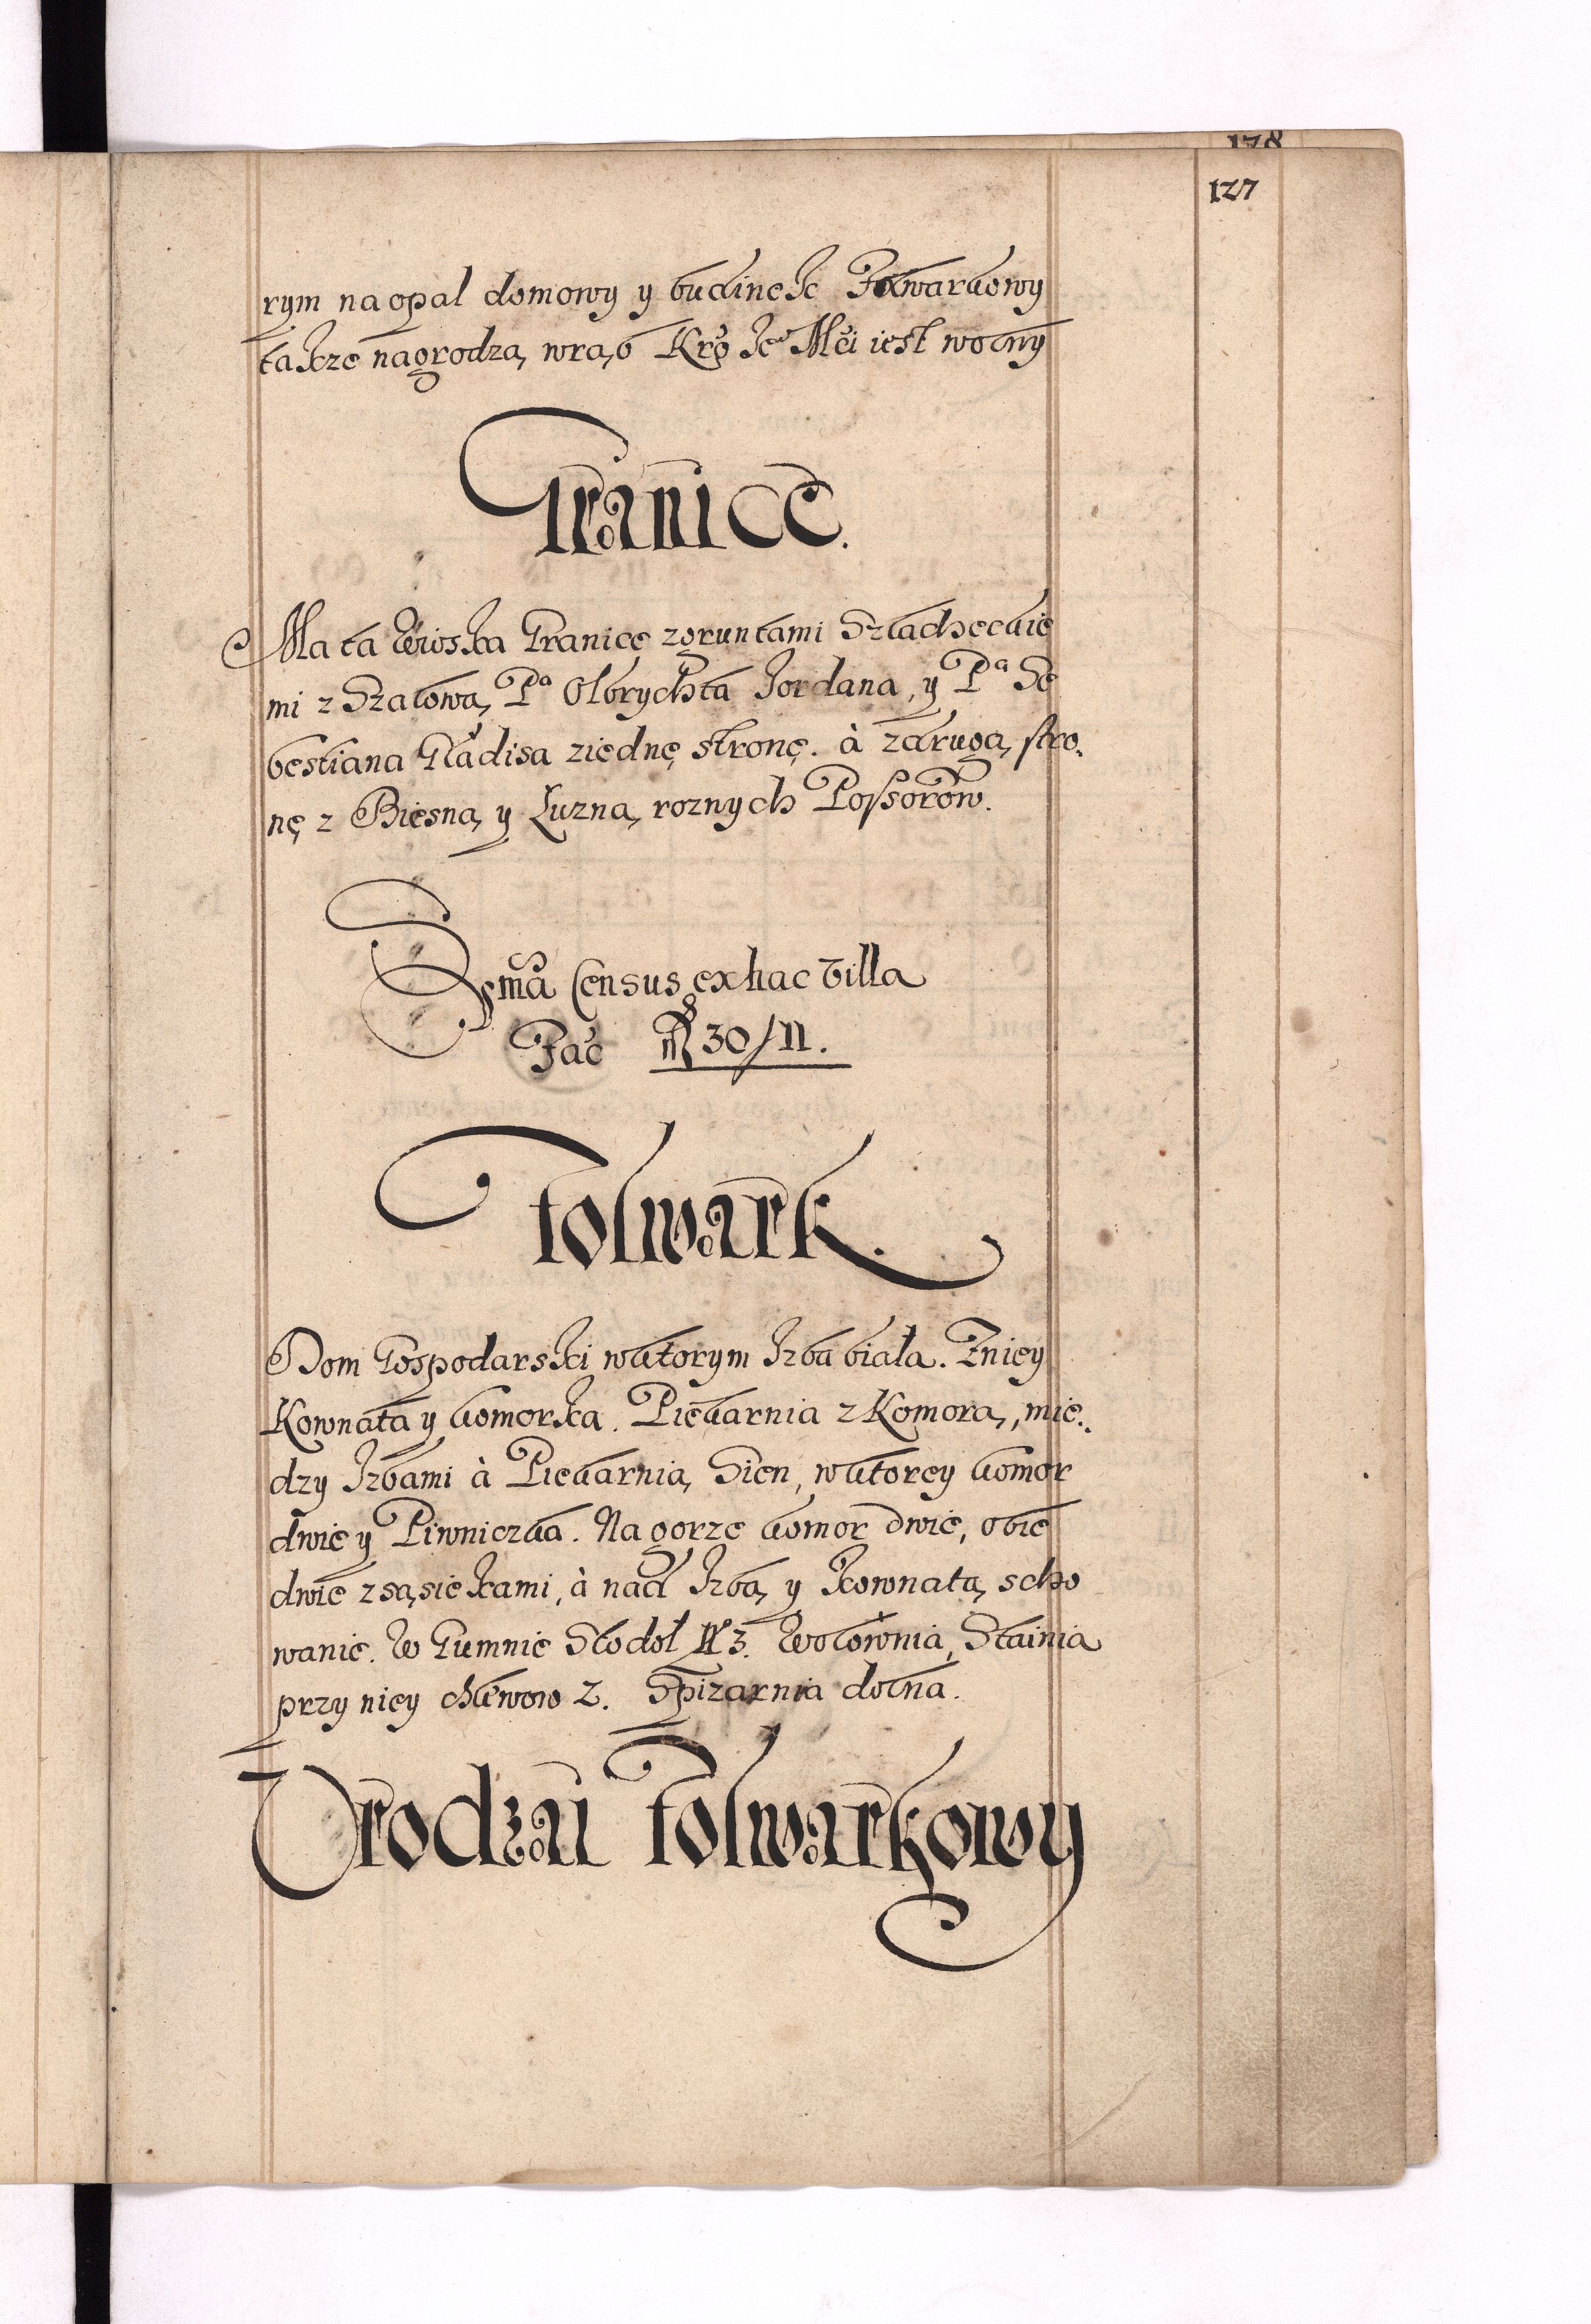 178
127
rym na opal domowy y budinek Folwarkowy
takze nagrodzą wrąb Kro Je Mci iest wolny
Granice.
Ma ta Wioska Granicę z gruntami Szlacheckie
mi z Szalową, Pa Olbrychta Jordana, y Pa Se
bestiana Gładisa z iednę stronę. à z drugą stro
nę z Biesną y Łuzną roznych Possorow.
Sma Census ex hac Villa
Fac 30/11.
Folwark.
Dom Gospodarski w ktorym Izba biała. Z niey
Kownata y komorka. Piekarnia z Komorą, mie
dzy Izbami à Piekarnią Sien, w ktorey komor
dwie y Piwniczka. Na gorze komor dwie, obie
dwie z sąsiekami, à nad Izbą y kownatą scho
wanie. W Gumnie Stodol No 3. Wołownia, Stainia
przy niey chlewow 2. Spizarnia dolna.
Vrodzai Folwarkowy